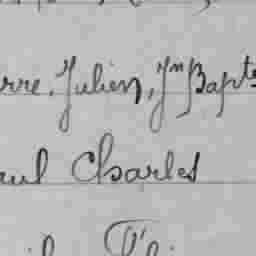 rre, Julien, Jn Bapte
aul Charles